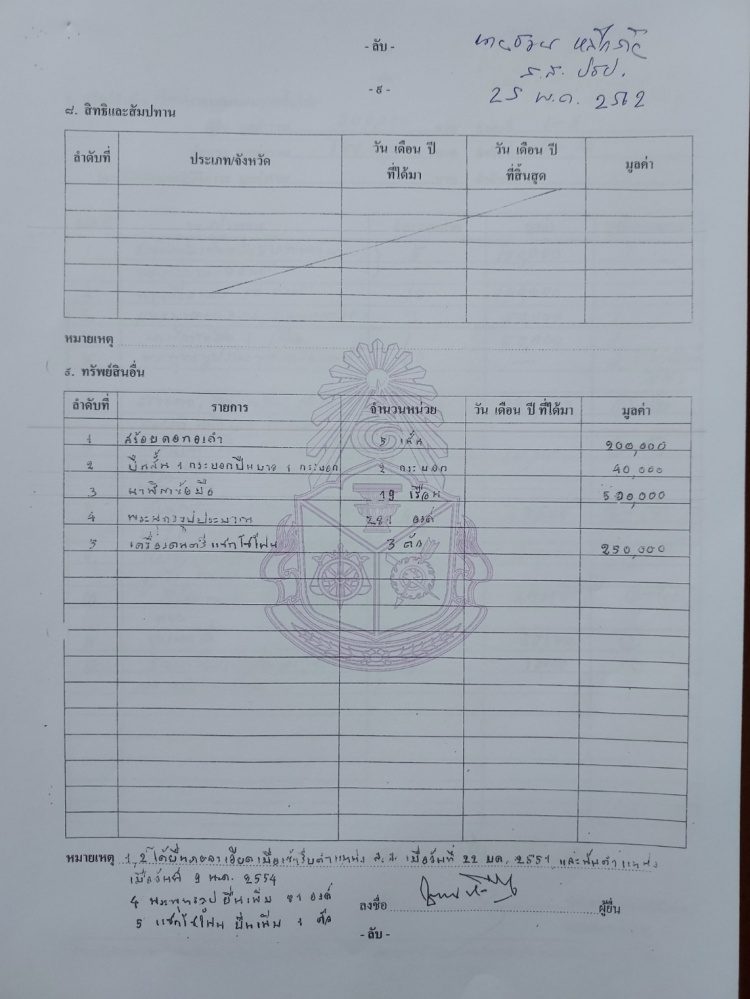 - ลับ -
นายชวน หลีกภัย
ส.ส. ปชป.
- ๙ -
25 พ.ค. 2562
๘. สิทธิและสัมปทาน
ลำดับที่ ประเภท/จังหวัด วัน เดือน ปี ที่ได้มา วัน เดือน ปี ที่สิ้นสุด มูลค่า
หมายเหตุ
๙. ทรัพย์สินอื่น
ลำดับที่ รายการ จำนวนหน่วย วัน เดือน ปี ที่ได้มา มูลค่า
1 สร้อยคอทองคำ 5 เส้น 200,000
2 ปืนสั้น 1 กระบอกปืนยาว 1 กระบอก 2 กระบอก 40,000
3 นาฬิกาข้อมือ 19 เรือน 500,000
4 องค์
5 เครื่องดนตรีแซกโซโฟน 3 ตัว 250,000
หมายเหตุ 1,2 ได้ยื่นรายละเอียดเมื่อเข้ารับตำแหน่ง ส.ส. เมื่อวันที่ 22 มค. 2551 และพ้นตำแหน่ง
เมื่อวันที่ 9 พค. 2554
4 พระพุทธรูป ยื่นเพิ่ม องค์
5 แซกโซโฟน ยื่นเพิ่ม 1 ตัว
ลงชื่อ ผู้ยื่น
- ลับ -